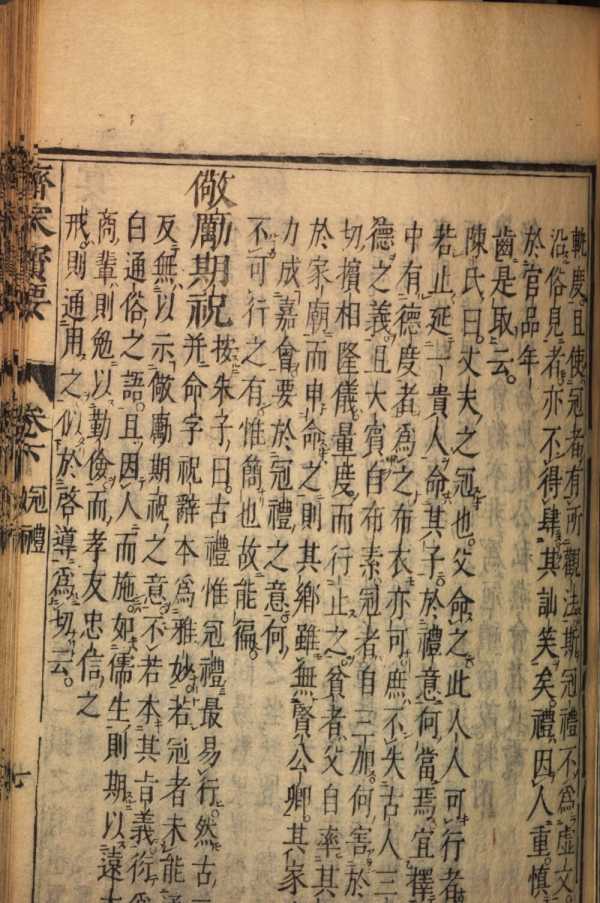 軌度且使冠者有所觀法斯冠禮不爲虛文
沿俗見者亦不得肆其訕笑矣禮因人重愼
於官品年
齒是取云
陳氏曰丈夫之冠也父命之此人人可行者
若止延一貴人命其子於禮意何當焉宜擇
中有德度者爲之布衣亦可庶不失古人三
德之義且大賓自布素冠者自三加何害於
切擯相隆儀量度而行止之貧者父自率其
於家廟而申命之則其鄉雖無賢公卿其家
力成嘉會要於冠禮之意何
不可行之有惟簡也故能徧
儆勵期祝按朱子曰古禮惟冠禮最易行然古
并命字祝辭本爲雅妙若冠者未能
反無以示儆勵期祝之意不若本其旨義衍
白通俗之語且因人而施如儒生則期以遠
商輩則勉以勤儉而孝友忠信之
戒則通用之似於啓導爲切云
齊家寶要
卷六
冠禮
七